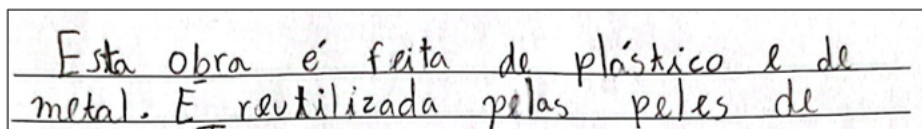 Esta obra é feita de plástico e de
metal. E reutilizada pelas peles de